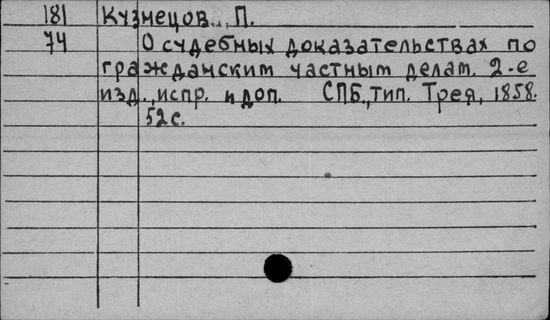 181 Кузнецов, П.
74 О судебных доказательствах по
гражданским частным делам. 2-е
изд., испр. и доп. СПБ., тип. Трея, 1858.
52 с.